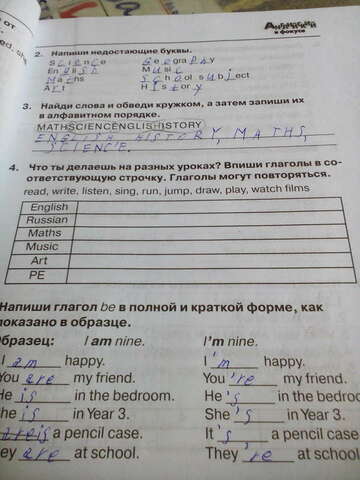 от
ed. she
Английский
в фокусе
2. Напиши недостающие буквы.
Science Geography
English Music
Maths School subject
Art History
3. Найди слова и обведи кружком, а затем запиши их
в алфавитном порядке.
MATHSCIENCENGLISHISTORY
ENGLISH HISTORY, MATHS,
SCIENCE.
4. Что ты делаешь на разных уроках? Впиши глаголы в со-
ответствующую строчку. Глаголы могут повторяться.
read, write, listen, sing, run, jump, draw, play, watch films
English
Russian
Maths
Music
Art
PE
Напиши глагол be в полной и краткой форме, как
показано в образце.
Образец: I am nine. I'm nine.
I am happy. I 'm happy.
You are my friend. You 're my friend.
He is in the bedroom. He 's in the bedroo
She is in Year 3. She 's in Year 3.
is a pencil case. It 's a pencil case.
hey are at school. They 're at school.